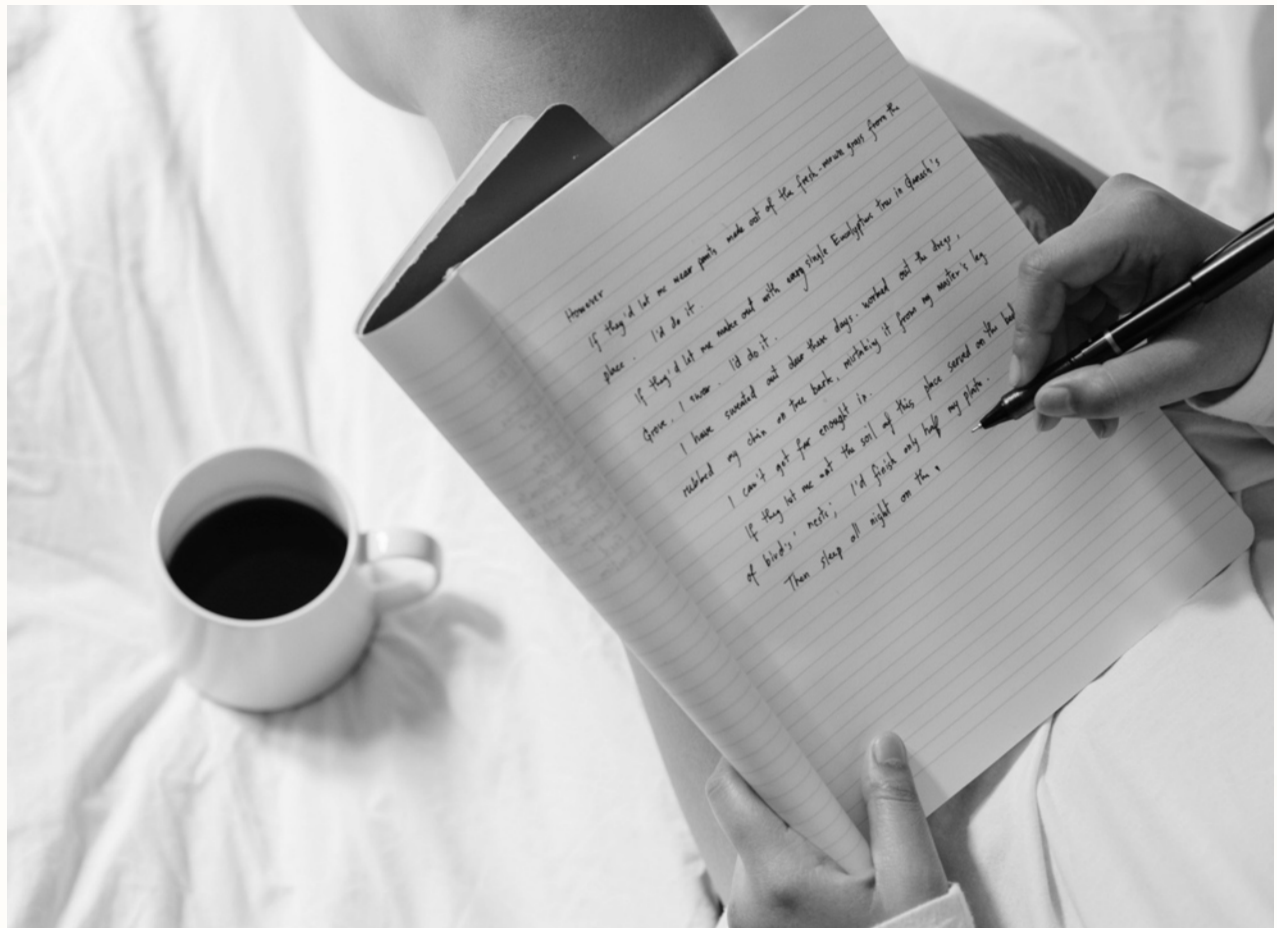 However
If they'd let me wear pants made out of the fresh-manure grass from the
place. I'd do it.
If they'd let me make out with every single Eucalyptus tree in Ganesh's
Grove, I swear. I'd do it.
I have sweated out dew these days. worked out the dregs,
rubbed my chin on tree bark, mistaking it from my master's leg
I can't get far enough in.
If they let me eat the soil of this place served on the bed
of bird's' nests; I'd finish only half my plate.
Then sleep all night on the